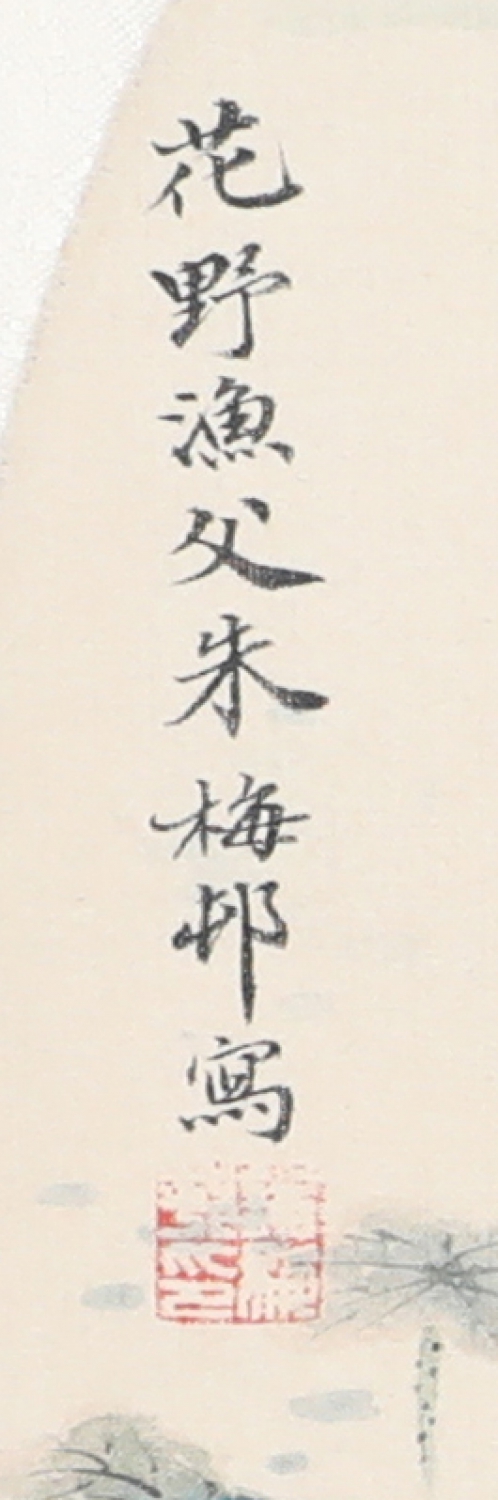 花野漁父朱梅邨寫